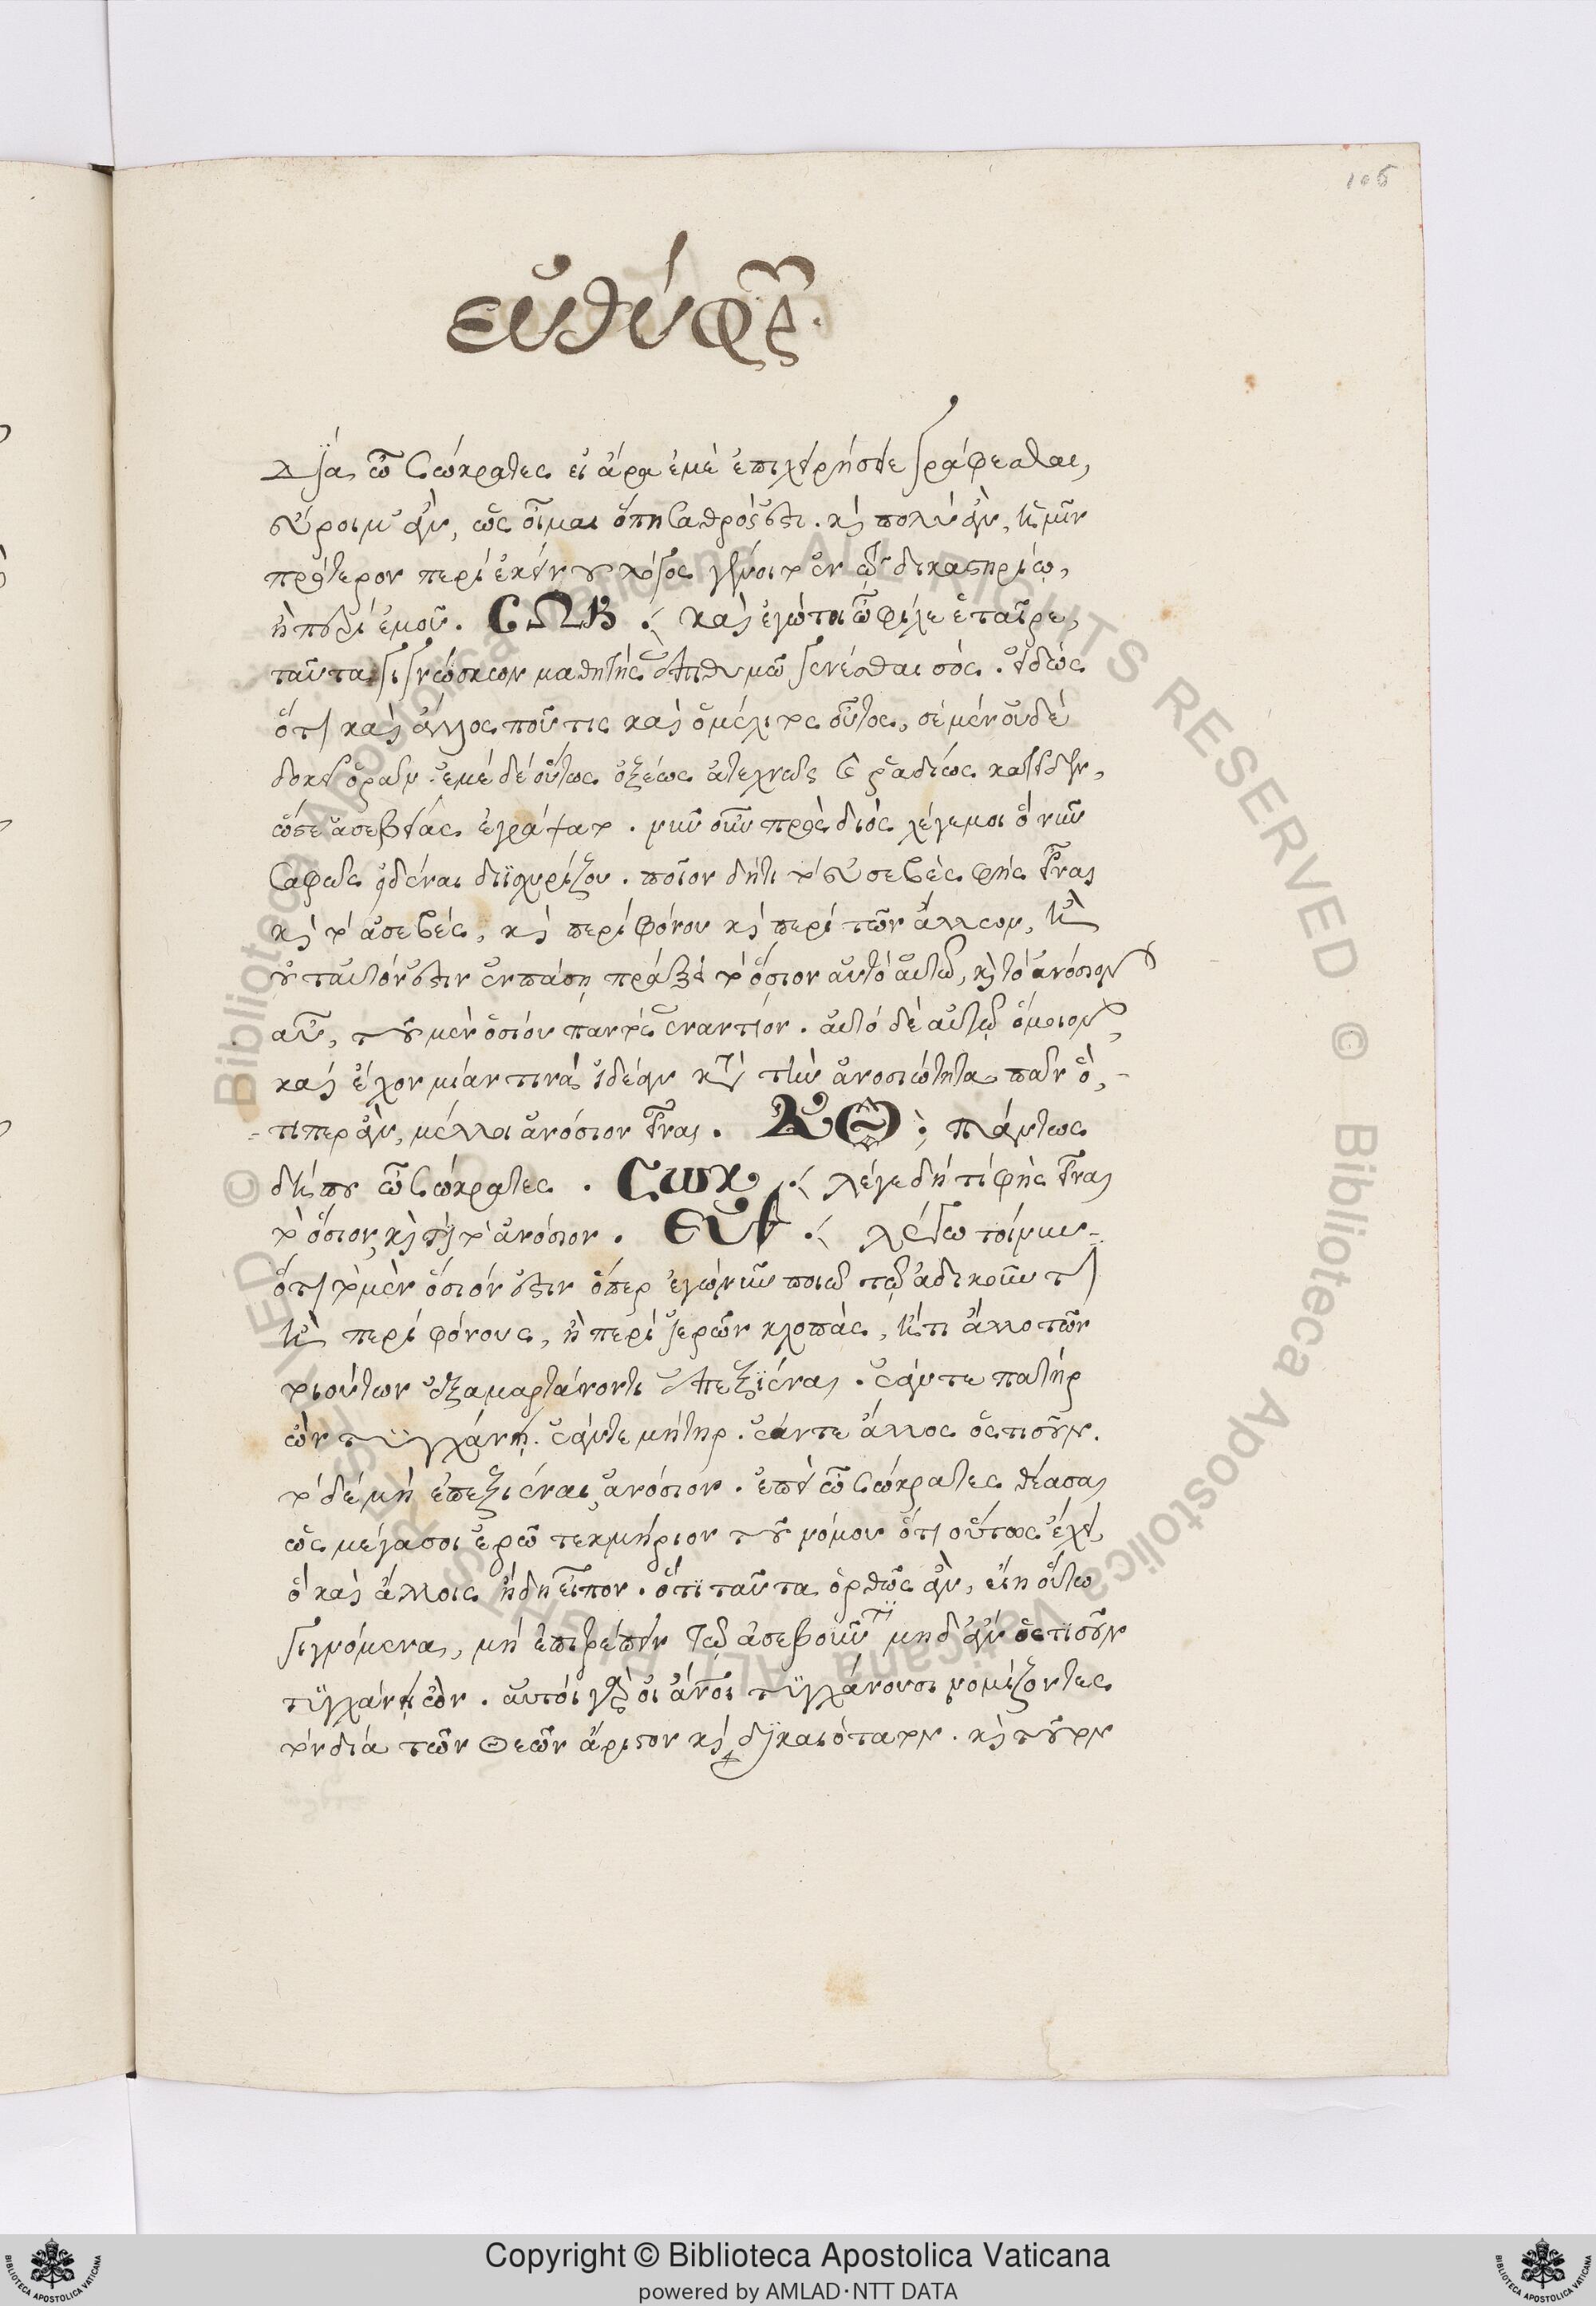 105
εὐθύφρ.
Δία ὦ Σώκρατες εἰ ἄρα ἐμὲ ἐπιχειρήσειε γράφεσθαι,
εὕροιμ' ἂν, ὡς οἶμαι ὅπη σαθρός ἐστι. καὶ πολὺ ἂν, ἡμῖν
πρότερον περὶ ἐκείνου λόγος γένοιτο ἐν τῷ δικαστηρίῳ,
ἢ περὶ ἐμοῦ. ΣΩΚ : καὶ ἐγώ τοι ὦ φίλε ἑταῖρε,
ταῦτα γιγνώσκων μαθητὴς ἐπιθυμῶ γενέσθαι σός. εἰδὼς
ὅτι καὶ ἄλλος πού τις καὶ ὁ μέλιτος οὗτος, σὲ μὲν οὐδὲ
δοκεῖ ὁρᾶν. ἐμὲ δὲ οὕτως ὀξέως ἀτεχνῶς καὶ ῥαδίως κατεῖδεν,
ὥστε ἀσεβείας ἐγράψατο. νῦν οὖν πρὸς διὸς λέγε μοι ὃ νῦν
σαφῶς εἰδέναι διϊσχυρίζου. ποῖον δή τι τὸ εὐσεβὲς φῂς εἶναι
καὶ τὸ ἀσεβὲς, καὶ περὶ φόνου καὶ περὶ τῶν ἄλλων, ἢ
οὐ ταυτόν ἐστιν ἐν πάσῃ πράξει τὸ ὅσιον αὐτὸ αὑτῷ, καὶ τὸ ἀνόσιον
αὖ, τοῦ μὲν ὁσίου παντὸς ἐναντίον. αὐτὸ δὲ αὑτῷ ὅμοιον,
καὶ ἔχον μίαν τινὰ ἰδέαν κατὰ τὴν ἀνοσιότητα πᾶν ὅ,-
-τιπερ ἂν, μέλλοι ἀνόσιον εἶναι. ΕΥΘ : πάντως
δήπου ὦ Σώκρατες. Σωκ : λέγε δὴ τί φῂς εἶναι
τὸ ὅσιον, καὶ τί τὸ ἀνόσιον. ΕΥθ : λέγω τοίνυν-
ὅτι τὸ μὲν ὅσιόν ἐστιν ὅπερ ἐγὼ νῦν ποιῶ τῷ ἀδικοῦντι
ἢ περὶ φόνους, ἢ περὶ ἱερῶν κλοπὰς, ἤ τι ἄλλο τῶν
τοιούτων ἐξαμαρτάνοντι ἐπεξϊέναι. ἐάν τε πατὴρ
ὢν τυγχάνῃ. ἐάν τε μήτηρ. ἐάν τε ἄλλος ὁστισοῦν.
τὸ δὲ μὴ ἐπεξιέναι, ἀνόσιον. ἐπεὶ ὦ Σώκρατες θέασαι
ὡς μέγα σοι ἐρῶ τεκμήριον τοῦ νόμου ὅτι οὕτως ἔχει,
ὃ καὶ ἄλλοις ἤδη εἶπον. ὅτι ταῦτα ὀρθῶς ἂν, εἴη οὕτω
γιγνόμενα, μὴ ἐπιτρέπειν τῷ ἀσεβοῦντι μηδ' ἂν ὁστισοῦν
τυγχάνῃ ὤν. αὐτοὶ γὰρ οἱ ἄνοι τυγχάνουσι νομίζοντες
τὸν δία τῶν Θεῶν ἄριστον καὶ δικαιότατον. καὶ τοῦτον